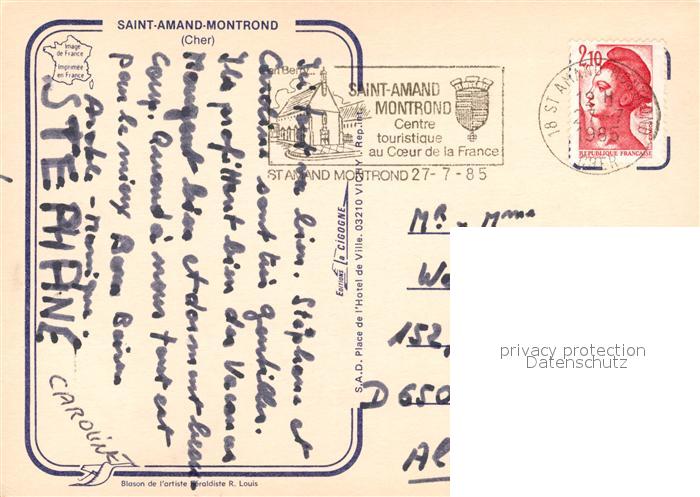 SAINT-AMAND-MONTROND
(Cher)
Image
de France
Imprimée
en France
Tout va bien. Stéphane et
Caroline sont très gentilles.
Ils profittent bien des Vacances
Mangent bien et dorment beau
Coup. Quand à nous tout est
pour le mieux Bons Baisers
Monique
STEPHANE
CAROLINE
Blason de l'artiste héraldiste R. Louis
EDITIONS La CIGOGNE
S.A.D. Place de l'Hotel de Ville. 03210 VICHY - Rep. Int.
en Berry
SAINT-AMAND
MONTROND
Centre
touristique
au Cœur de la France
ST AMAND MONTROND 27-7-85
18 ST AMAND MONTROND
1985
CHER
2,10
REPUBLIQUE FRANCAISE
Mr - Mme
We
152,
D 650
Al
privacy protection
Datenschutz